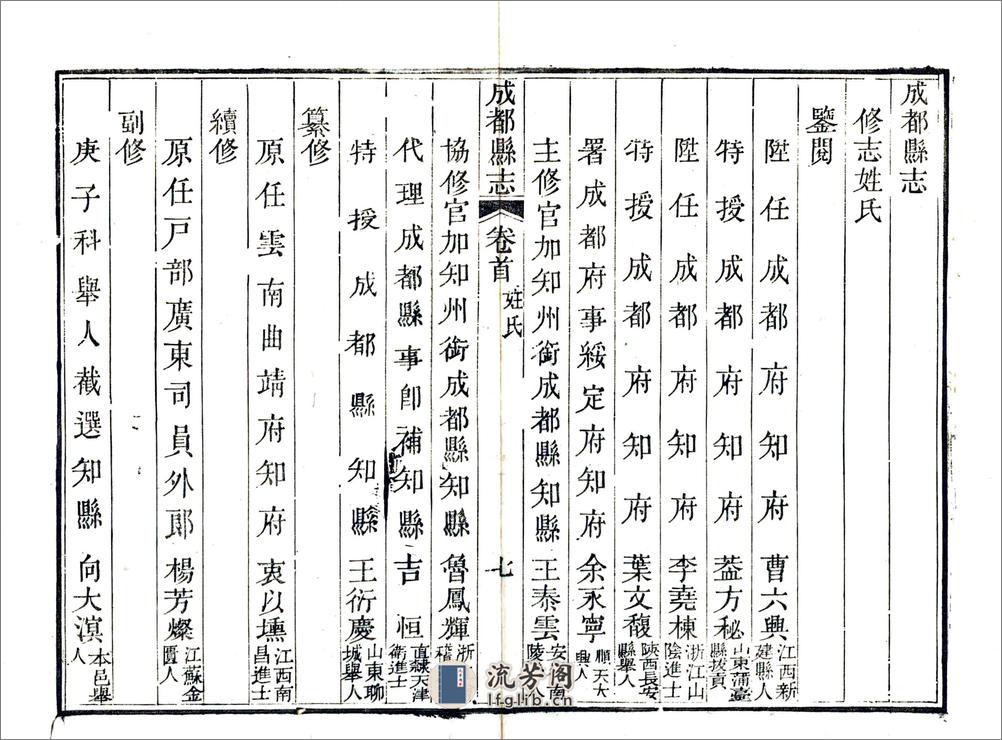 成都縣志
修志姓氏
鑒閱
陞任成都府知府曹六興江西新建縣人
特授成都府知府蓋方秘山東蒲臺縣拔貢
陞任成都府知府李堯棟浙江山陰進士
特授成都府知府葉文馥陝西長安縣舉人
署成都府事綏定府知府余永寧順天大興人
主修官加知州銜成都縣知縣王泰雲安南陵人
成都縣志 卷首 姓氏 七
協修官加知州銜成都縣知縣魯鳳輝浙
代理成都縣事即補知縣吉恒直隸天津衛進士
特授成都縣知縣王衍慶山東聊城舉人
纂修
原任雲南曲靖府知府衷以壎江西南昌進士
續修
原任戶部廣東司員外郎楊芳燦江蘇金匱人
副修
庚子科舉人截選知縣向大淇本邑舉人
流芳阁
lfglib.cn